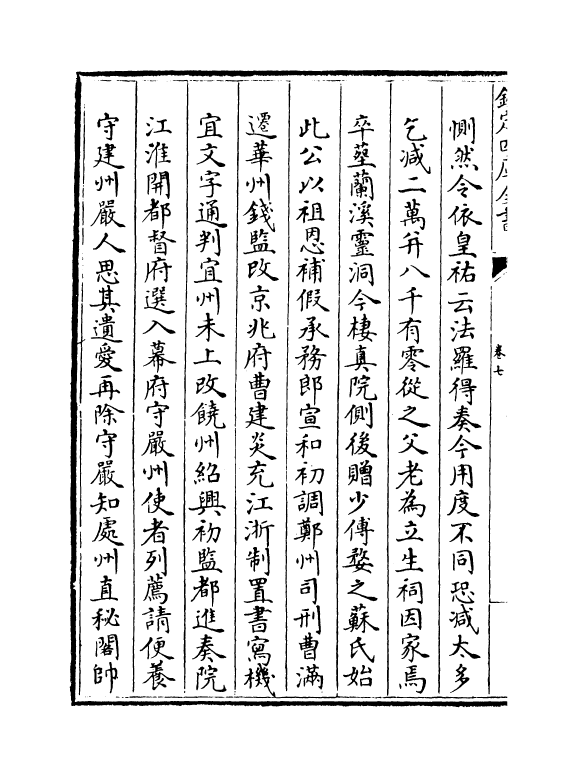 欽定四庫全書
卷七
惻然令依皇祐云法羅得奏今用度不同恐減太多
乞減二萬弁八千有零從之父老為立生祠因家焉
卒塟蘭溪靈洞今棲真院側後贈少傅婺之蘇氏始
此公以祖恩補假承務郎宣和初調鄭州司刑曹滿
遷華州錢監改京兆府曹建炎充江浙制置書寫機
宜文字通判宜州未上改饒州紹興初監都進奏院
江淮開都督府選入幕府守嚴州使者列薦請便養
守建州嚴人思其遺愛再除守嚴知處州直秘閣帥